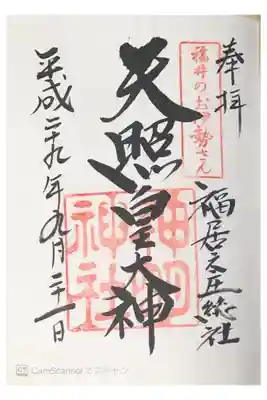 奉拝
福井のお伊勢さん
福居之庄総社
天照皇大神
神明神社
平成二十九年九月二十一日
CS CamScanner でスキャン